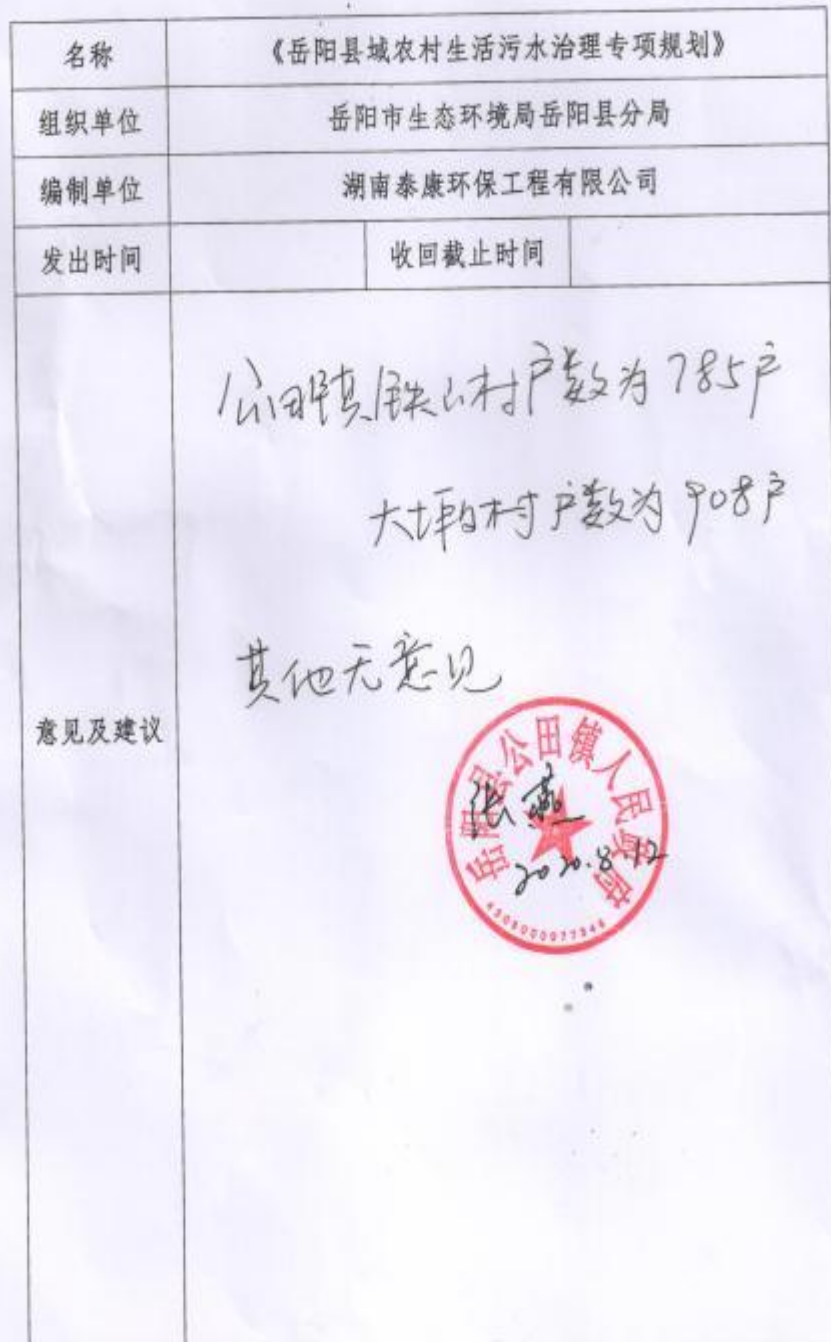 名称 《岳阳县域农村生活污水治理专项规划》
组织单位 岳阳市生态环境局岳阳县分局
编制单位 湖南泰康环保工程有限公司
发出时间 收回截止时间
公田镇铁山村户数为785户
大坪村户数为908户
其他无意见
意见及建议
岳阳县公田镇人民政府
张燕
2020.8.12